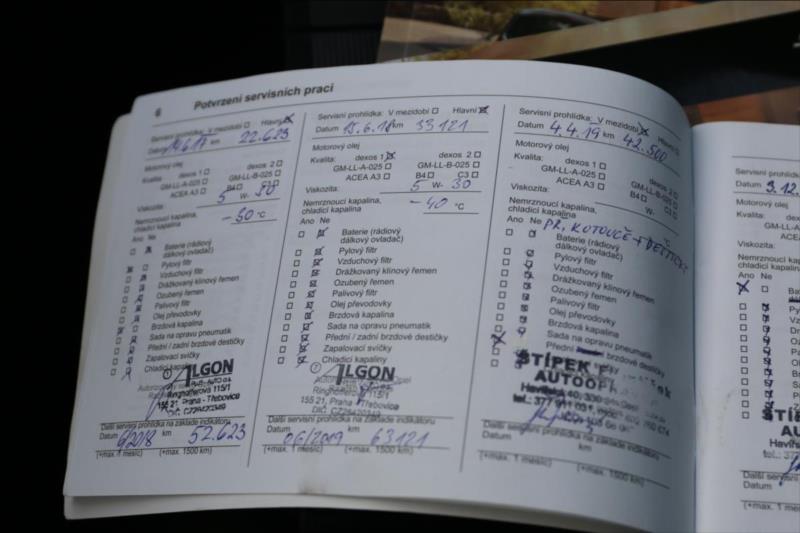 6 Potvrzení servisních prací
Servisní prohlídka: V mezidobí Hlavní
Datum 22.623
Motorový olej
Kvalita: dexos 1 dexos 2
GM-LL-A-025 GM-LL-B-025
ACEA A3 B4 C3
Viskozita: 5 W- 30
Nemrznoucí kapalina,
chladicí kapalina -30 °C
Ano Ne
Baterie (rádiový
dálkový ovladač)
Pylový filtr
Vzduchový filtr
Drážkovaný klínový řemen
Ozubený řemen
Palivový filtr
Olej převodovky
Brzdová kapalina
Sada na opravu pneumatik
Přední / zadní brzdové destičky
Zapalovací svíčky
Chladicí
ALGON
Ringhofferova 115/1
155 21 Praha - Třebovice
Další servisní prohlídka na základě indikátoru
Datum 6/2018 km 52.623
(+max. 1 měsíc) (+max. 1500 km)
Servisní prohlídka: V mezidobí Hlavní
Datum 15.6.18 km 33121
Motorový olej
Kvalita: dexos 1 dexos 2
GM-LL-A-025 GM-LL-B-025
ACEA A3 B4 C3
Viskozita: 5 W- 30
Nemrznoucí kapalina,
chladicí kapalina -40 °C
Ano Ne
Baterie (rádiový
dálkový ovladač)
Pylový filtr
Vzduchový filtr
Drážkovaný klínový řemen
Ozubený řemen
Palivový filtr
Olej převodovky
Brzdová kapalina
Sada na opravu pneumatik
Přední / zadní brzdové destičky
Zapalovací svíčky
Chladicí kapaliny
ALGON
Opel
Ringhofferova 115/1
155 21, Praha - Třebovice
Další servisní prohlídka na základě indikátoru
Datum 06/2019 km 63121
(+max. 1 měsíc) (+max. 1500 km)
Servisní prohlídka: V mezidobí Hlavní
Datum 4.4.19 km 42.500
Motorový olej
Kvalita: dexos 1 dexos 2
GM-LL-A-025 GM-LL-B-025
ACEA A3 B4 C3
Viskozita: W-
Nemrznoucí kapalina,
chladicí kapalina °C
Ano Ne PŘ. KOTOUČE + DESTIČKY
Baterie (rádiový
dálkový ovladač)
Pylový filtr
Vzduchový filtr
Drážkovaný klínový řemen
Ozubený řemen
Palivový filtr
Olej převodovky
Brzdová kapalina
Sada na opravu pneumatik
Přední brzdové destičky
ŠTÍPEK
AUTOOPR
tel.: 377 911 031
Další servisní prohlídka na základě indikátoru
Datum km
(+max. 1 měsíc) (+max. 1500 km)
Servisní proh
Datum 3.12.
Motorový ole
Kvalita:
Viskozita:
Nemrznoucí
chladicí kapa
Ano Ne
Pylo
Vzd
Drá
Ozu
Pali
Ole
Brz
Sad
ŠTÍP
AUT
Havířs
tel.: 377
Další servisní
Datum
(+max. 1 měs